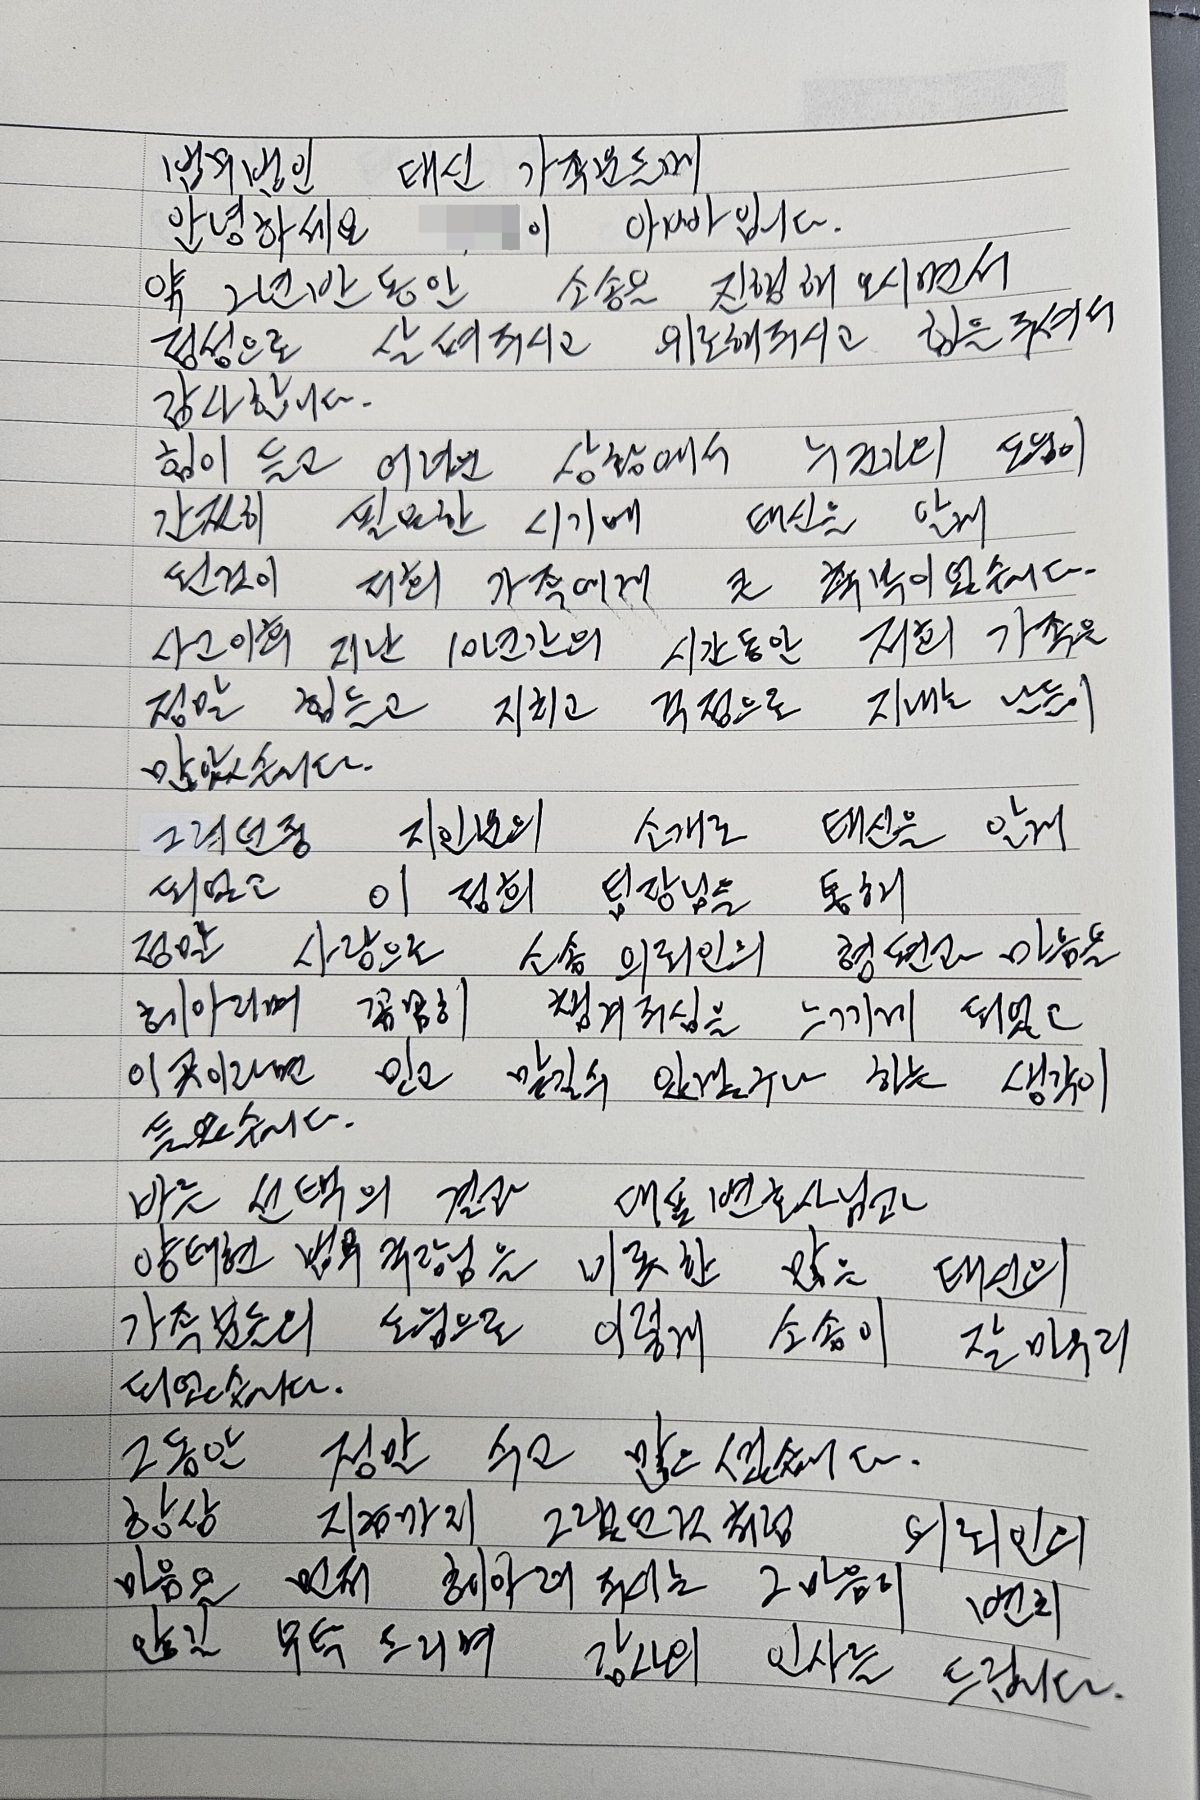 법무법인 태신 가족분들께
안녕하세요 이 아빠입니다.
약 2년반 동안 소송을 진행해 오시면서
정성으로 살펴주시고 위로해주시고 힘을 주셔서
감사합니다.
힘이 들고 어려운 상황에서 누군가의 도움이
간절히 필요한 시기에 태신을 알게
된것이 저희 가족에게 큰 축복이었습니다.
사고이후 지난 10년간의 시간동안 저희 가족은
정말 힘들고 지치고 걱정으로 지내는 날들이
많았습니다.
그러던중 지인분의 소개로 태신을 알게
되었고 이정희 팀장님을 통해
정말 사랑으로 소송 의뢰인의 형편과 마음을
헤아리며 꼼꼼히 챙겨주심을 느끼게 되었고
이곳이라면 믿고 맡길수 있겠구나 하는 생각이
들었습니다.
바른 선택의 결과 대표변호사님과
양태현 법무국장님을 비롯한 많은 태신의
가족분들의 도움으로 이렇게 소송이 잘 마무리
되었습니다.
그동안 정말 수고 많으셨습니다.
항상 지금까지 그래오던것처럼 의뢰인의
마음을 먼저 헤아려 주시는 그마음이 변치
않길 부탁 드리며 감사의 인사를 드립니다.